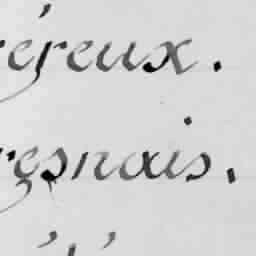 réreux.
resnais.